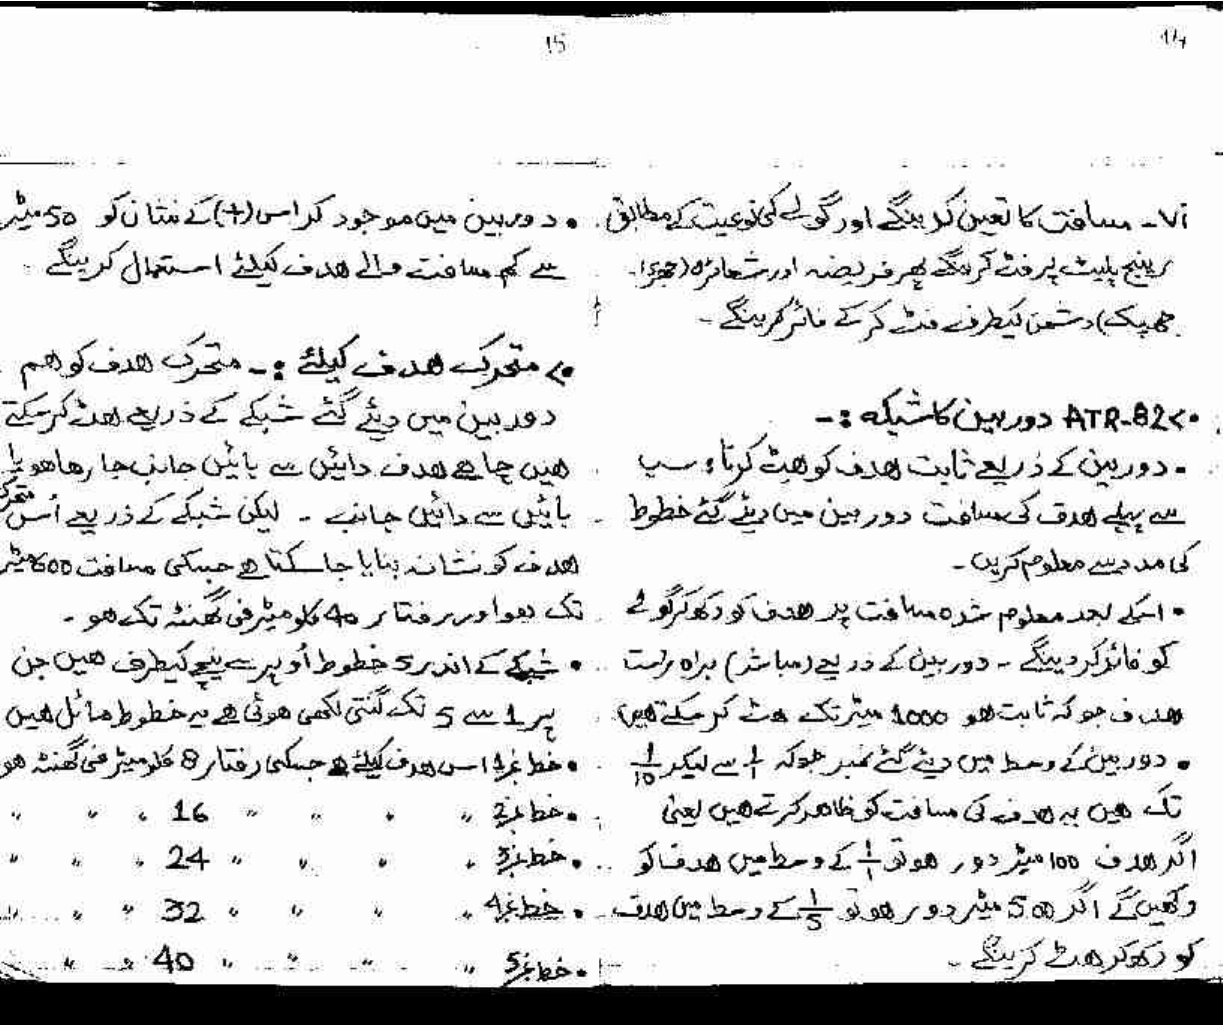 14
vi۔ مسافت کا تعین کرینگے اور گولے کی نوعیت کے مطابق
رینج پلیٹ پر فٹ کرینگے پھر فریضہ اور شعائرہ (جوی)۔
جھپکے) دشمن کیطرف فٹ کر کے فائر کرینگے ۔
ATR-82 دوربین کا شبکہ :-
• دوربین کے ذریعے ثابت ھدف کو ھٹ کرنا ، سب
سے پہلے ھدف کی مسافت دوربین میں دیئے گئے خطوط
کی مدد سے معلوم کریں ۔
• اسکے بعد معلوم شدہ مسافت پر ھدف کو رکھ کر گولے
کو فائر کر دینگے ۔ دوربین کے ذریعے (مباشر) براہ راست
ھدف جو کہ ثابت ھو 1000 میٹر تک ھٹ کر سکتے ھیں
• دوربین کے وسط میں دیئے گئے نمبر جوکہ 1/1 سے لیکر 1/10
تک ھیں یہ ھدف کی مسافت کو ظاھر کرتے ھیں یعنی
اگر ھدف 100 میٹر دور ھو تو 1/1 کے وسط میں ھدف کو
رکھیں گے اگر 500 میٹر دور ھو تو 1/5 کے وسط میں ھدف
کو رکھ کر ھٹ کرینگے ۔
15
• دوربین میں موجود کراس (+) کے نشان کو 50 میٹر
سے کم مسافت والے ھدف کیلئے استعمال کرینگے ۔
متحرک ھدف کیلئے :۔ متحرک ھدف کو ھم
دوربین میں دیئے گئے شبکے کے ذریعے ھٹ کر سکتے
ھیں چاھے ھدف دائیں سے بائیں جانب جا رھا ھو یا
بائیں سے دائیں جانب ۔ لیکن شبکے کے ذریعے اُس متحرک
ھدف کو نشانہ بنایا جا سکتا ھے جسکی مسافت 600 میٹر
تک ھو اور رفتار 40 کلومیٹر فی گھنٹہ تک ھو ۔
• شبکے کے اندر 5 خطوط اُوپر سے نیچے کیطرف ھیں جن
پر 1 سے 5 تک گنتی لکھی ھوئی ھے یہ خطوط مائل ھیں
• خط نمبر 1 اس ھدف کیلئے ھے جسکی رفتار 8 کلومیٹر فی گھنٹہ ھو
• خط نمبر 2 〃 〃 〃 〃 16 〃 〃 〃
• خط نمبر 3 〃 〃 〃 〃 24 〃 〃 〃
• خط نمبر 4 〃 〃 〃 〃 32 〃 〃 〃
• خط نمبر 5 〃 〃 〃 〃 40 〃 〃 〃